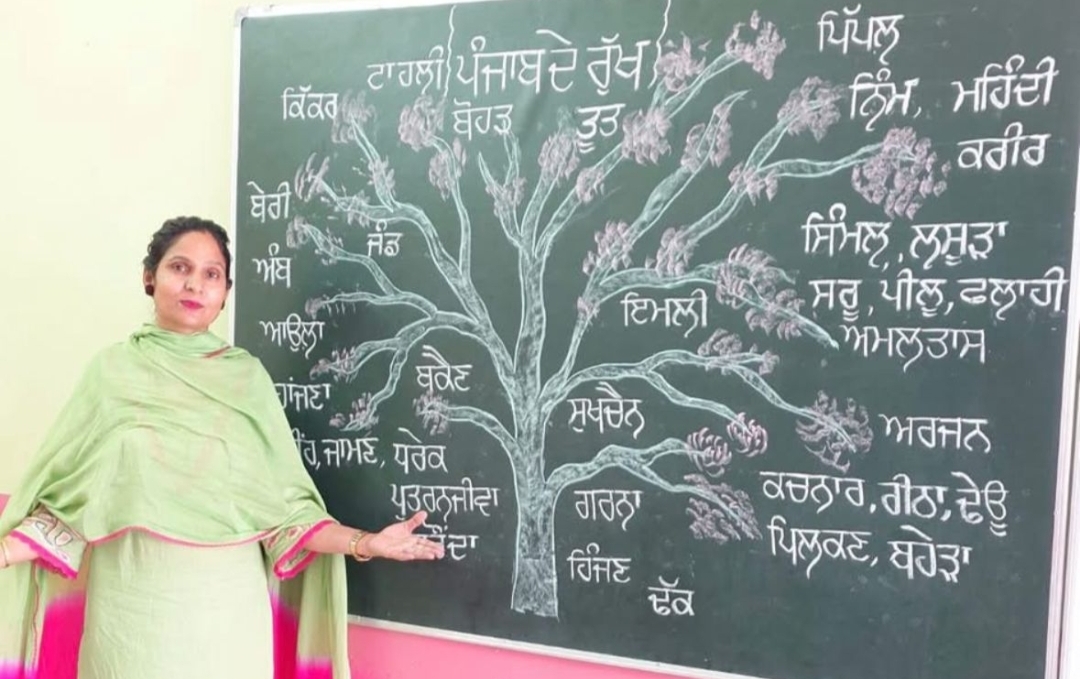 ਪੰਜਾਬ ਦੇ ਰੁੱਖ
ਟਾਹਲੀ
ਕਿੱਕਰ
ਬੋਹੜ
ਤੂਤ
ਪਿੱਪਲ਼
ਨਿੰਮ, ਮਹਿੰਦੀ
ਕਰੀਰ
ਬੇਰੀ
ਜੰਡ
ਅੰਬ
ਸਿੰਮਲ਼, ਲ਼ਸੂੜਾ
ਸਰੂ, ਪੀਲੂ, ਫਲਾਹੀ
ਅਮਲਤਾਸ
ਇਮਲੀ
ਆਉਲਾ
ਬਕੈਣ
ਸੁਖਚੈਨ
ਅਰਜਨ
ਜਾਮਣ, ਧਰੇਕ
ਪੁਤਰਨਜੀਵਾ
ਗਰਨਾ
ਕਚਨਾਰ, ਰੀਠਾ, ਢੇਊ
ਪਿਲਕਣ, ਬਹੇੜਾ
ਹਿੰਜਣ
ਢੱਕ